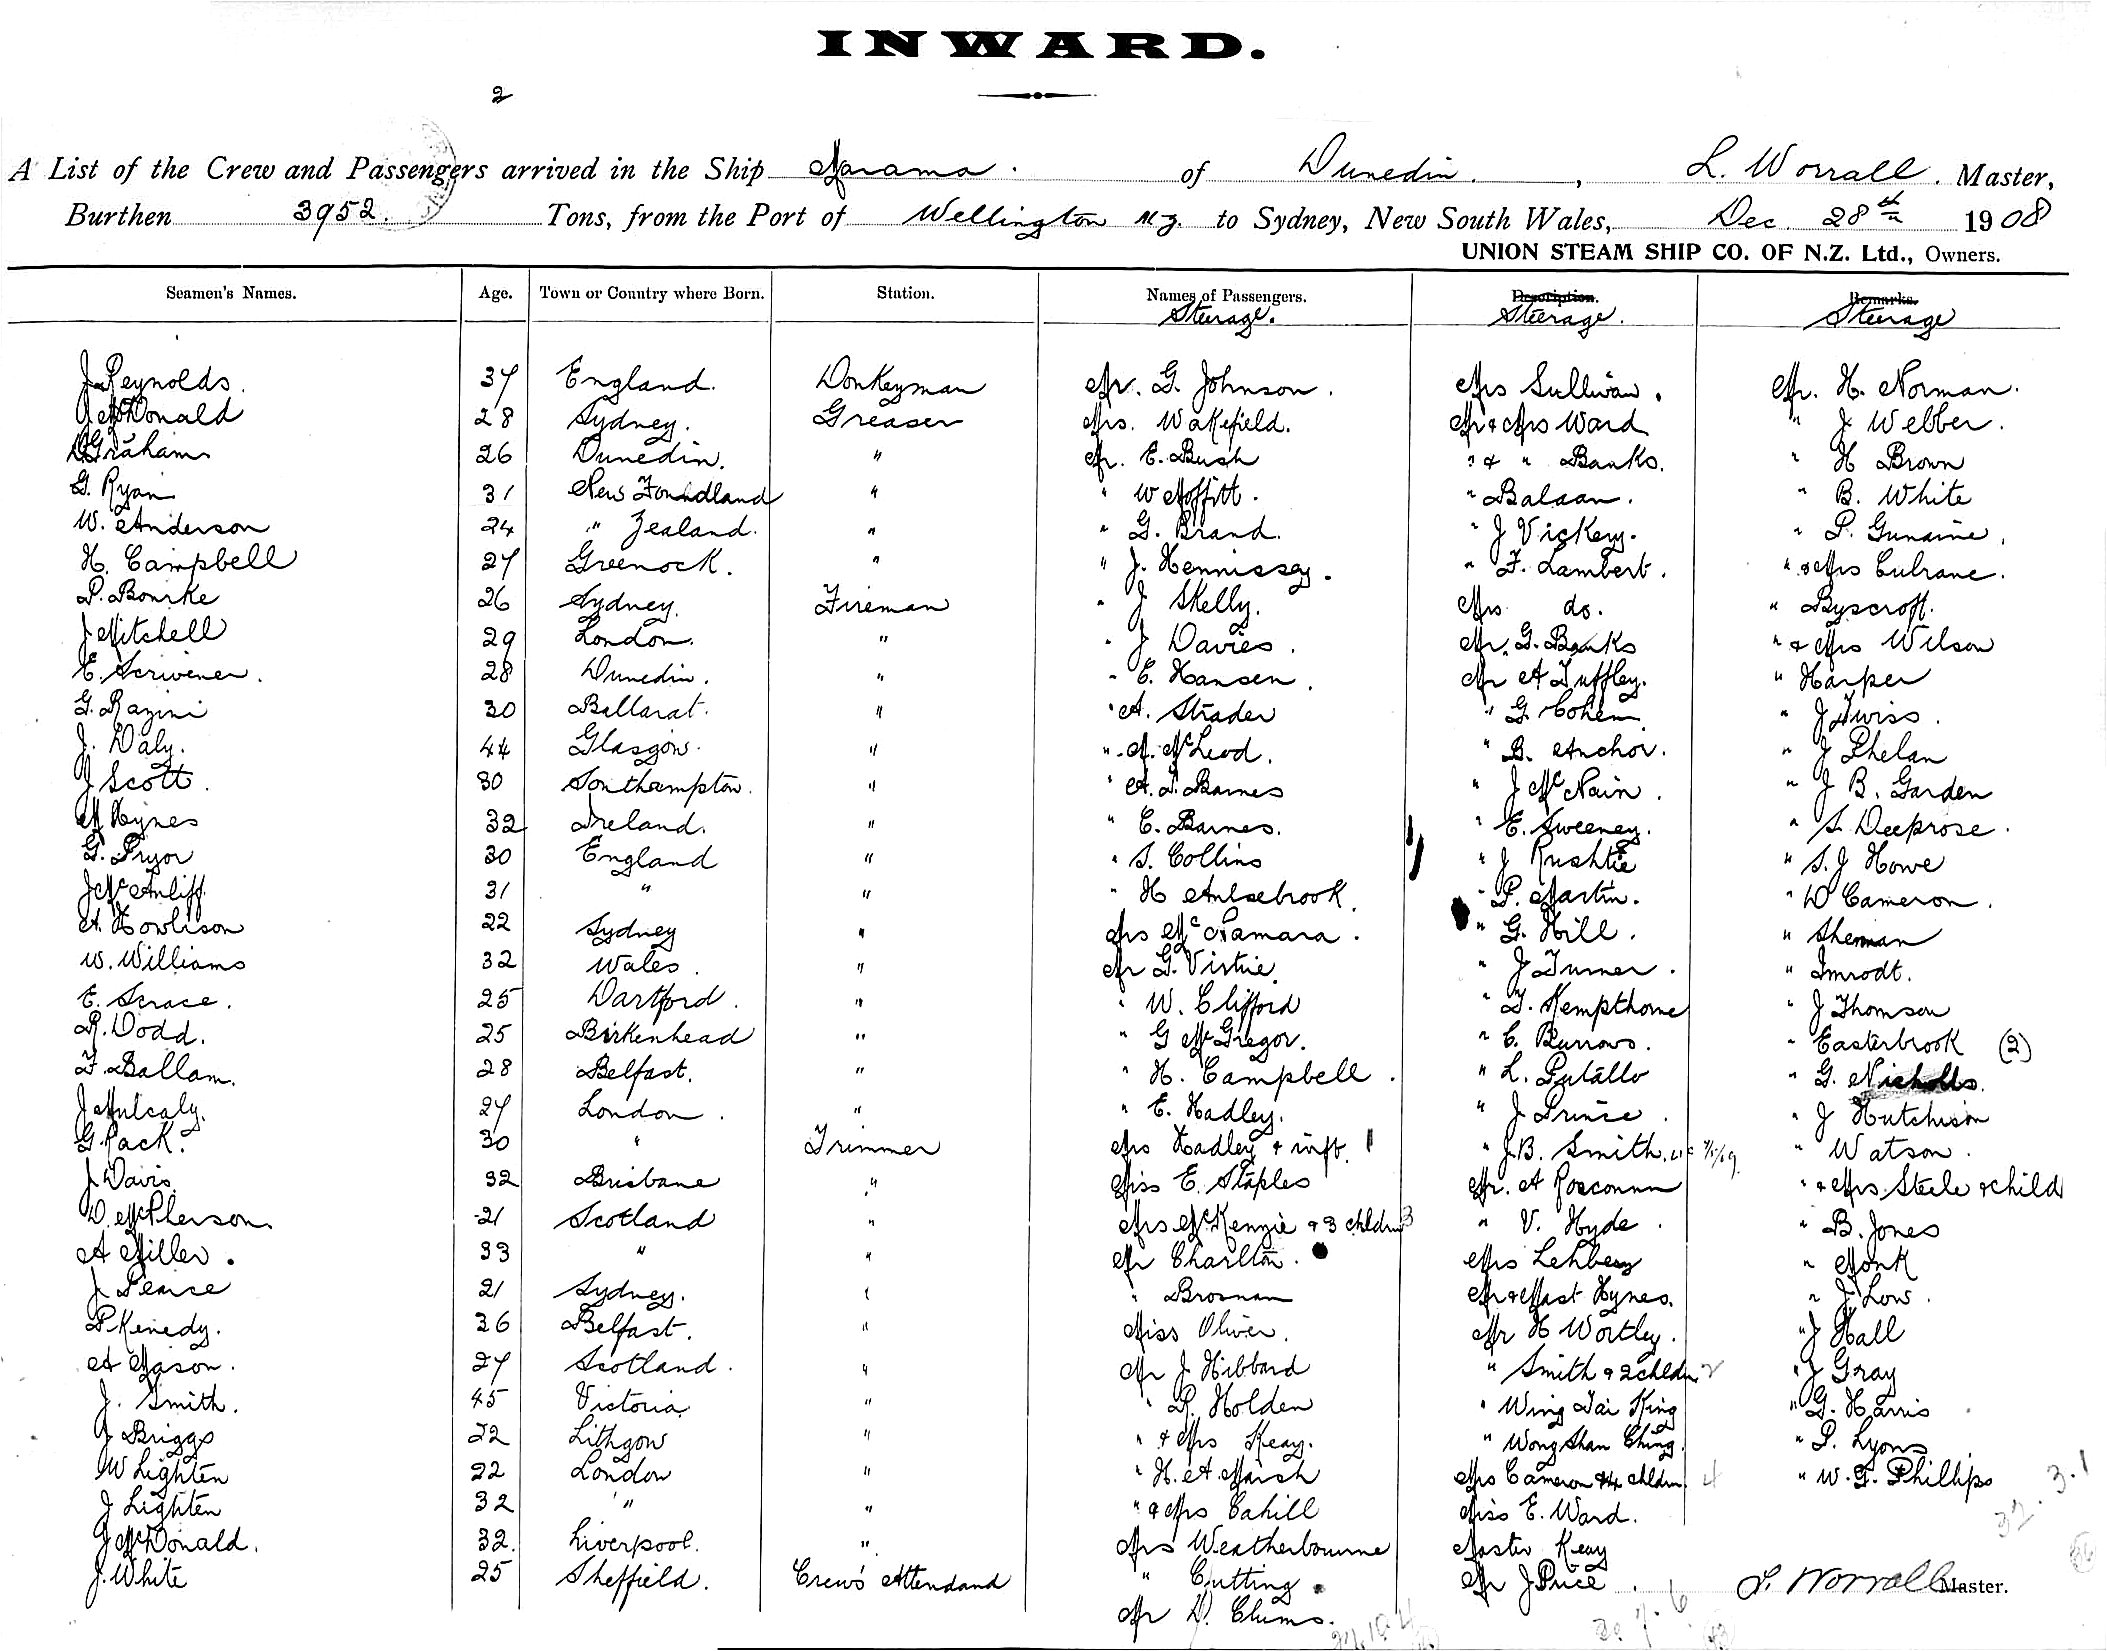 INWARD.
2
A List of the Crew and Passengers arrived in the Ship Marama. of Dunedin, L. Worrall. Master,
Burthen 3952. Tons, from the Port of Wellington N.Z. to Sydney, New South Wales, Dec. 28th 1908
UNION STEAM SHIP CO. OF N.Z. Ltd., Owners.
Seamen's Names. Age. Town or Country where Born. Station. Names of Passengers. Description. Remarks.
Steerage. Steerage. Steerage
J Reynolds. 37 England. Donkeyman Mr. G. Johnson. Mrs Sullivan. Mr. H. Norman.
J McDonald 28 Sydney. Greaser Mrs. Wakefield. Mr & Mrs Ward " J Webber.
Graham 26 Dunedin. " Mr. E. Bush " & " Banks. " H Brown
G. Ryan 31 New Foundland " " W Moffitt. " Balaan. " B. White
W. Anderson 24 " Zealand. " " G. Brand. " J Vickery. " P.
H. Campbell 27 Greenock. " " J. Hennissey. " F. Lambert. " & Mrs Culrane.
P. Bourke 26 Sydney. Fireman " J Skelly. Mrs do. " Byscroft.
J Mitchell 29 London. " " J Davies. Mr. G. Banks " & Mrs Wilson
E. Scrivener. 28 Dunedin. " " E. Hansen. Mr A Tuffley. " Harper
G. Razini 30 Ballarat. " " A. Strader " G. Cohen " J Twiss.
J. Daly. 44 Glasgow. " " A. McLeod. " B. Anchor. " J Phelan
J Scott. 30 Southampton. " " A. T. Barnes " J McNair. " J B. Garden
M Hynes 32 Ireland. " " E. Barnes. " E. Sweeney. " S. Deeprose.
G. Pryor 30 England " " S. Collins " J " S. J Howe
J McAuliff. 31 " " " H Aulsebrook. " P. Martin. " D Cameron.
A. Howlison 22 Sydney " Mrs McNamara. " G. Hill. " Sherman
W. Williams 32 Wales. " Mr G. Virtue " J Turner. " Imrodt.
E. Scrace. 25 Dartford. " " W. Clifford " T. Kempthorne " J Thomson
R. Dodd. 25 Birkenhead " " G McGregor. " C. Burrows. " Easterbrook (2)
F. Ballam. 28 Belfast. " " H. Campbell. " L. Putallo " G. Nicholls.
J Mulcahy. 27 London. " " E. Hadley. " J Prince. " J Hutchison
G Pack. 30 " Trimmer Mrs Hadley & inft. 1 " J.B. Smith. " Watson.
J Davis 32 Brisbane " Miss E. Staples Mr. A " & Mrs. Steele & child
D. McPherson. 21 Scotland " Mrs McKenzie & 3 chldrn 3 " V. Hyde. " B. Jones
A Miller. 33 " " Mr Charlton. Mrs " Monk
J Pearce 21 Sydney. " " Brosnan Mr & Mast Hynes. " J. Low.
P Kenedy. 36 Belfast. " Miss Oliver. Mr H Wortley. " J Hall
A Mason. 27 Scotland. " Mr J Hibbard " Smith & 2 chldrn 2 " J Gray
J. Smith. 45 Victoria " " R. Holden " Wing Tai King " G. Harris
J Briggs 22 Lithgow " " & Mrs Keay. " Wong Shan Ching. " P. Lyons
W Lighten 22 London " " H. A. Marsh Mrs Cameron & 4 chldrn. 4 " W. G. Phillips
J Lighten 32 " " " & Mrs Cahill Miss E. Ward.
J McDonald. 32. Liverpool. " Mrs Weatherbourne Master Keay
J. White 25 Sheffield. Crew's Attendand " Cutting. Mr J Price. L. Worrall Master.
Mr D. Clums.